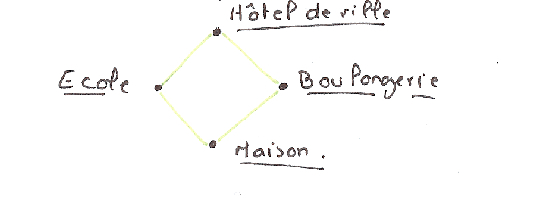 Hôtel de ville
Ecole
Boulangerie
Maison.